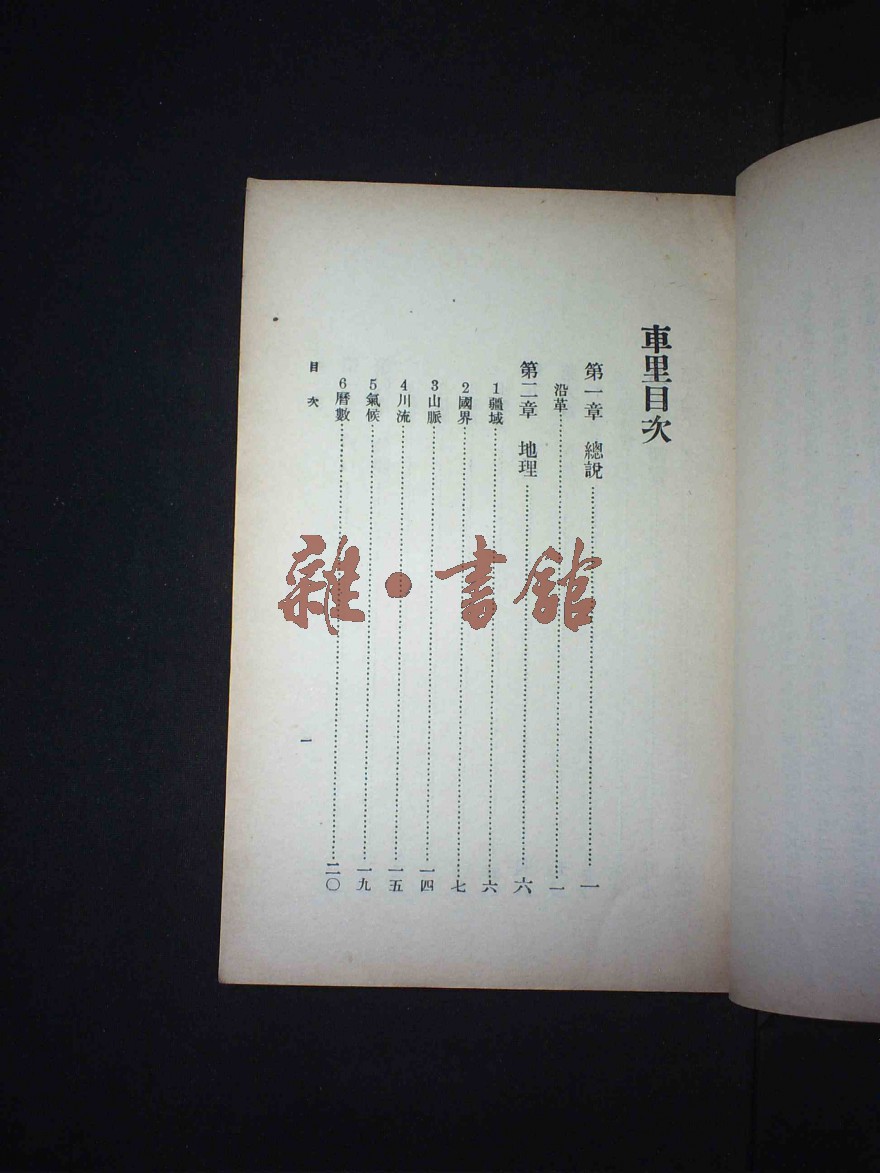 車里目次
第一章　總說……一
沿革……一
第二章　地理……六
1疆域……六
2國界……七
3山脈……一四
4川流……一五
5氣候……一九
6曆數……二〇
目次
一
雜·書館